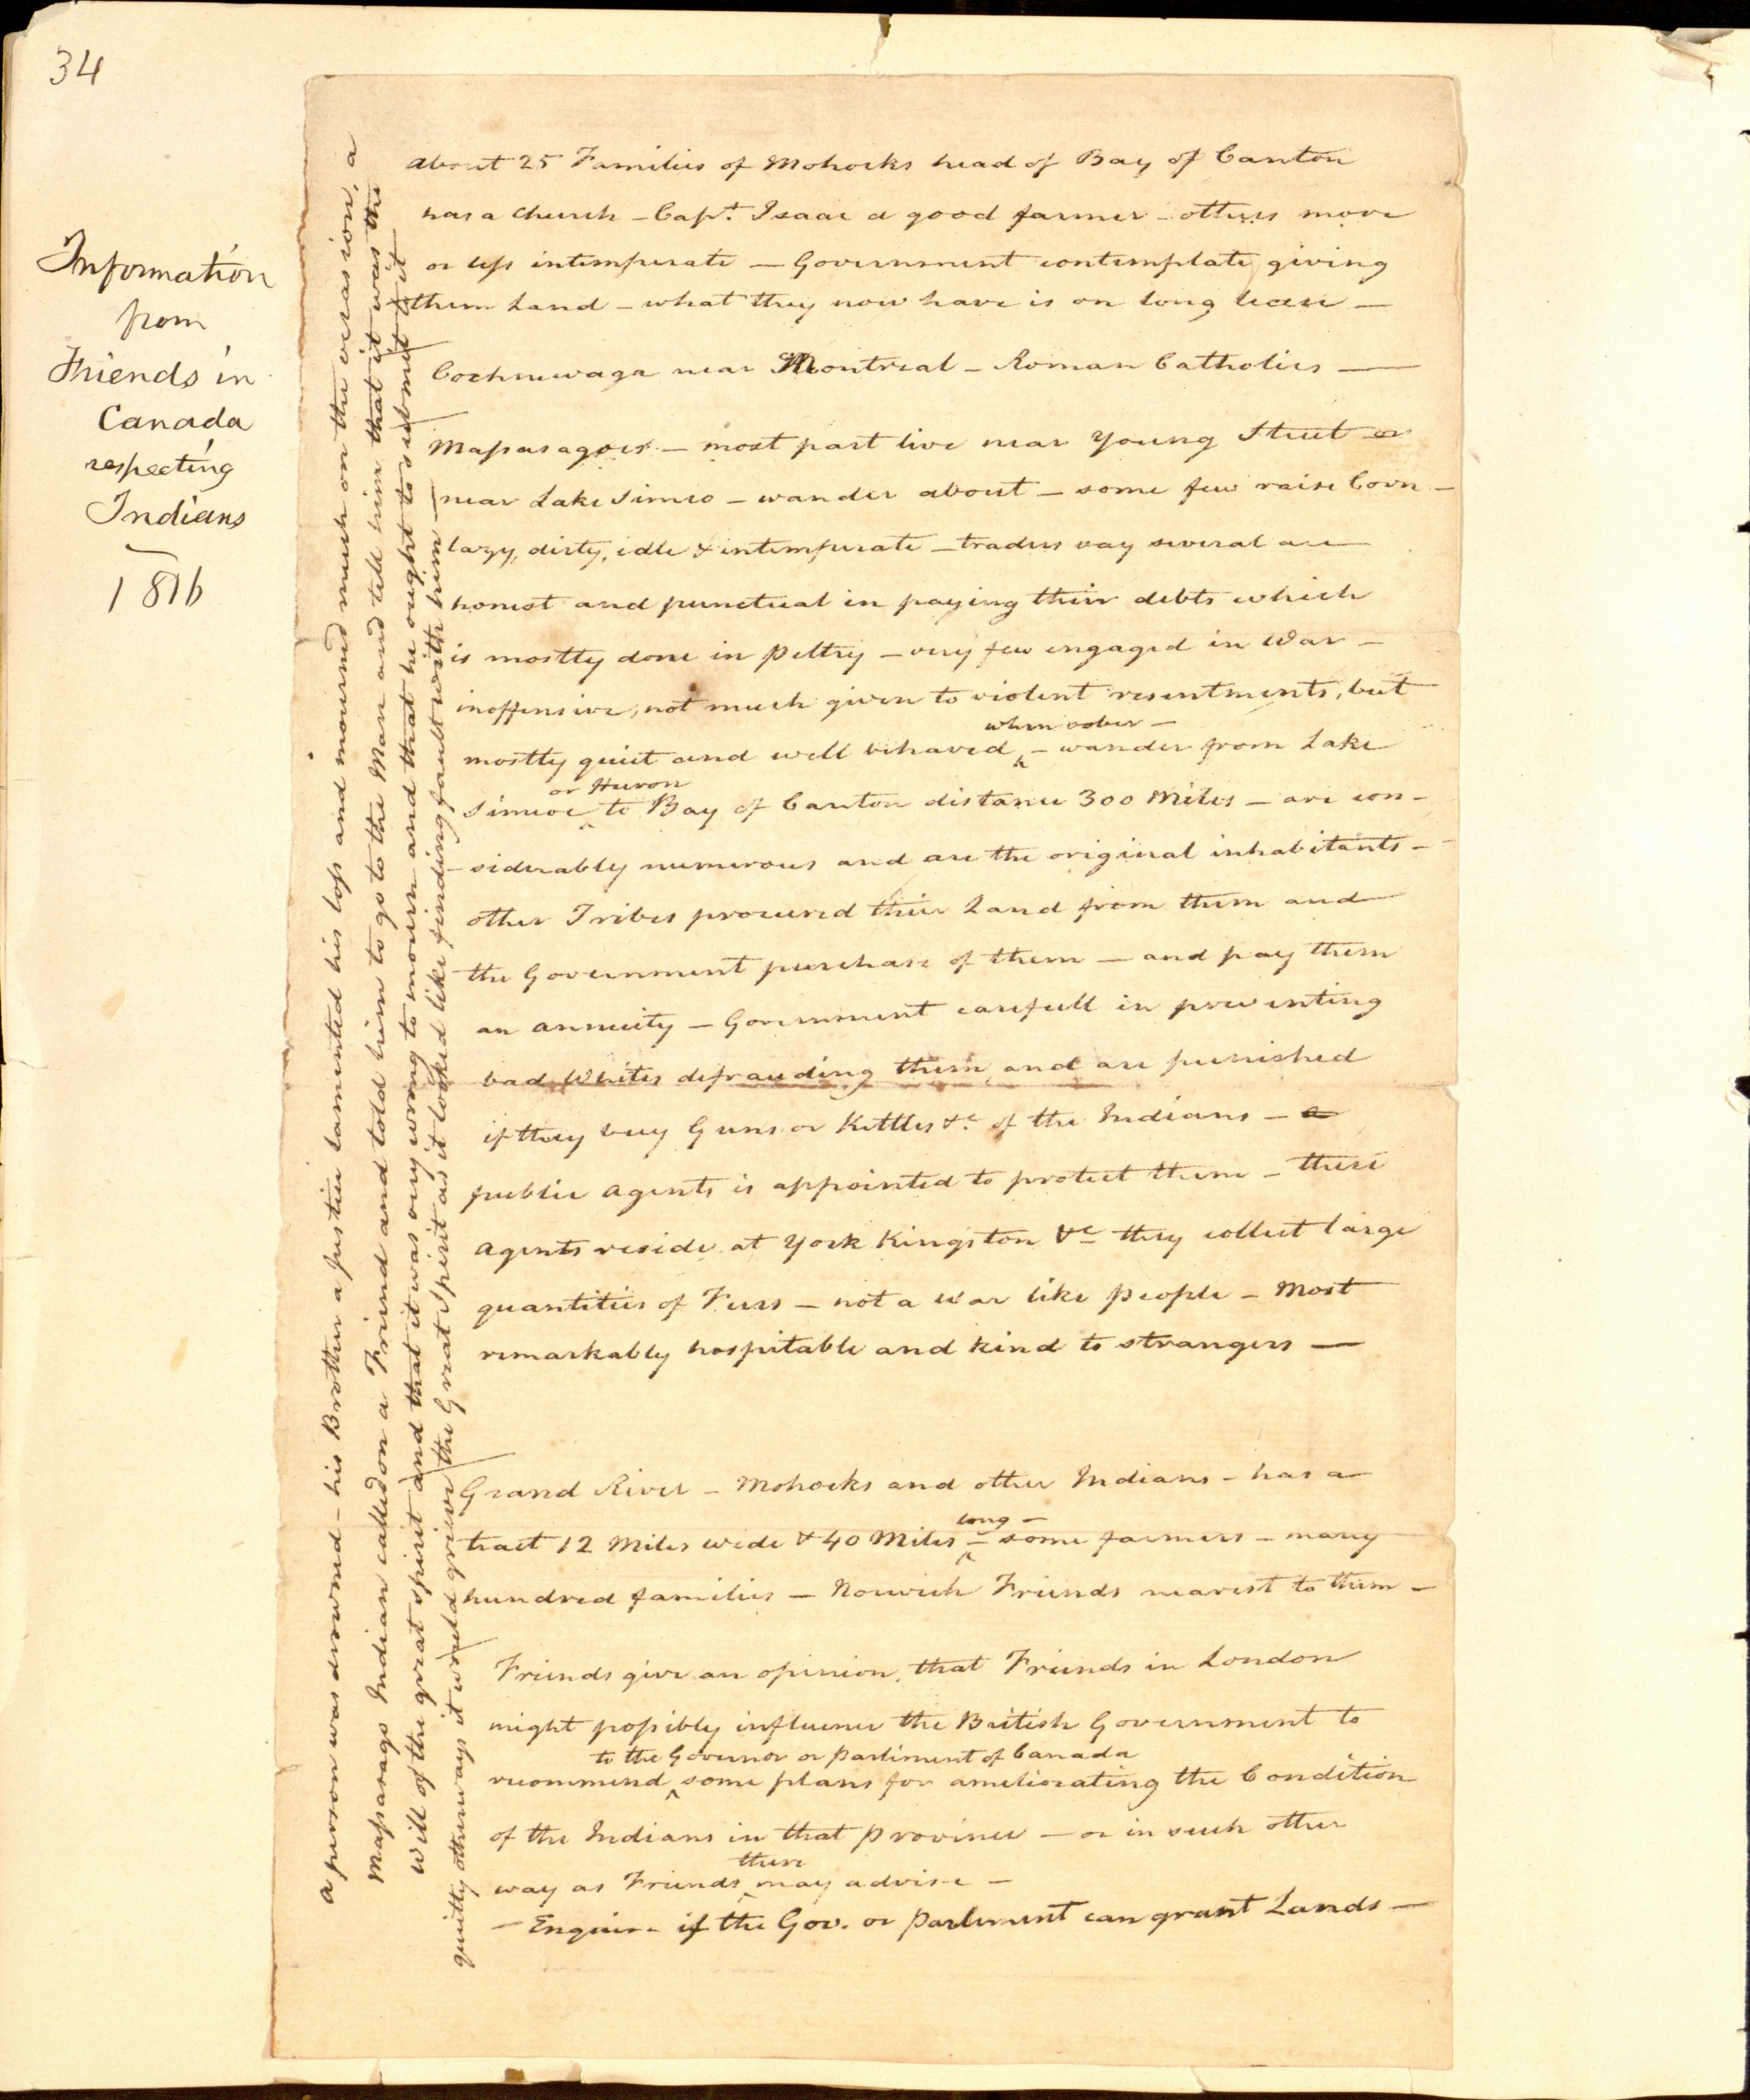 34
Information
from
Friends in
Canada
respecting
Indians
1816
about 25 Families of Mohocks head of Bay of Canton
has a Church – Capt. Isaac a good farmer – others more
or less intemperate — Government contemplate giving
them Land – what they now have is on long lease —
Cochnewaga near Montreal – Roman Catholics —
Massasagoes – most part live near Young Street or
near Lake Simco – wander about – some few raise Corn –
lazy, dirty, idle & intemperate – traders say several are
honest and punctual in paying their debts which
is mostly done in peltry – very few engaged in War –
inoffensive, not much given to violent resentments, but
when sober –
mostly quiet and well behaved ^ – wander from Lake
or Huron
Simcoe ^ to Bay of Canton distance 300 Miles – are con-
-siderably numerous and are the original inhabitants –
other Tribes procured their Land from them and
the Government purchase of them — and pay them
an annuity – Government carefull in preventing
bad Whites defrauding them, and are punished
if they buy Guns or Kettles &c of the Indians – a
public agents is appointed to protect them – these
agents reside at York Kingston &c they collect large
quantities of Furs – not a war like people – Most
remarkably hospitable and kind to strangers —
Grand River – Mohocks and other Indians – has a
long –
tract 12 Miles wide & 40 Miles ^ – some farmers – many
hundred families – Norwich Friends nearest to them –
Friends give an opinion, that Friends in London
might possibly influence the British Government to
to the Governor or Parliment of Canada
recommend ^ some plans for ameliorating the Condition
of the Indians in that province – or in such other
there
way as Friends ^ may advise –
– Enquire if the Gov. or Parlement can grant Lands —
a person was drowned – his Brother a justice lamented his loss and mourned much on the occasion, a
Massasago Indian called on a Friend and told him to go to the Man and tell him that it was the
will of the great spirit and that it was very wrong to mourn and that he ought to submit to it
quietly otherways it would grieve the Great Spirit as it looked like finding fault with him –